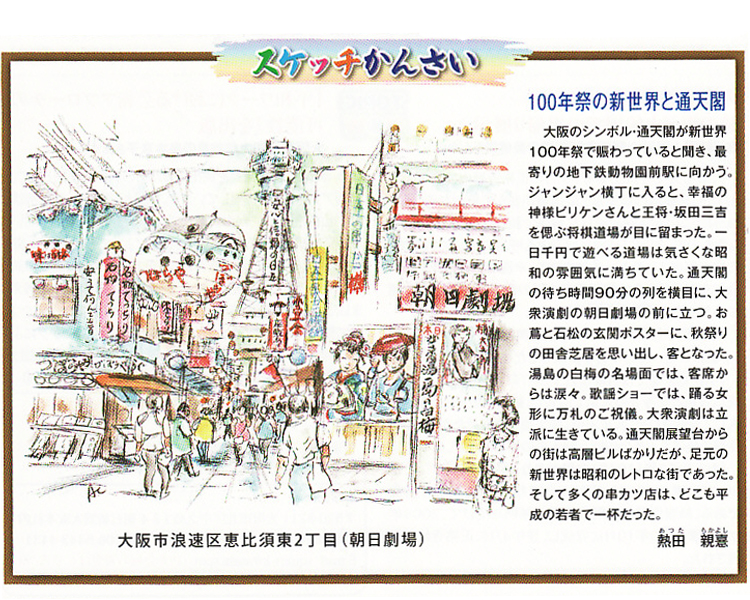 スケッチかんさい
100年祭の新世界と通天閣
大阪のシンボル・通天閣が新世界
100年祭で賑わっていると聞き、最
寄りの地下鉄動物園前駅に向かう。
ジャンジャン横丁に入ると、幸福の
神様ビリケンさんと王将・坂田三吉
を偲ぶ将棋道場が目に留まった。一
日千円で遊べる道場は気さくな昭
和の雰囲気に満ちていた。通天閣
の待ち時間90分の列を横目に、大
衆演劇の朝日劇場の前に立つ。お
蔦と石松の玄関ポスターに、秋祭り
の田舎芝居を思い出し、客となった。
湯島の白梅の名場面では、客席か
らは涙々。歌謡ショーでは、踊る女
形に万札のご祝儀。大衆演劇は立
派に生きている。通天閣展望台から
の街は高層ビルばかりだが、足元の
新世界は昭和のレトロな街であった。
そして多くの串カツ店は、どこも平
成の若者で一杯だった。
あつた ちかよし
熱田 親憙
朝日劇場
づぼらや
AC
大阪市浪速区恵比須東2丁目（朝日劇場）